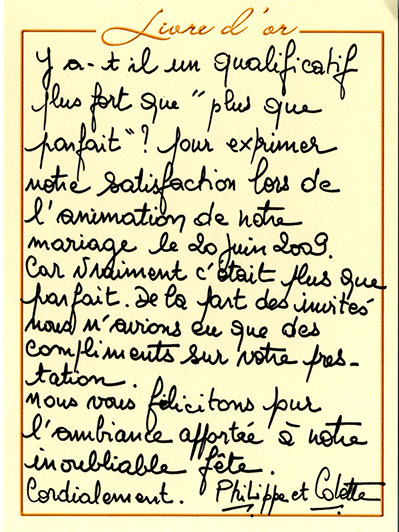 Livre d'or
Y a-t il un qualificatif
plus fort que "plus que
parfait"? pour exprimer
notre satisfaction lors de
l'animation de notre
mariage le 20 juin 2009.
Car vraiment c'était plus que
parfait. De la part des invités
nous n'avions eu que des
compliments sur votre pres-
tation.
nous vous félicitons pur
l'ambiance apportée à notre
inoubliable fête.
Cordialement. Philippe et Colette